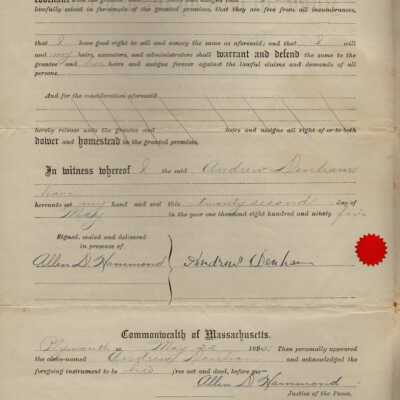 covenant with the grantee and
lawfully seized in fee-simple of the granted premises, that they are free from all incumbrances,
that I have good right to sell and convey the same as aforesaid; and that I will
and my heirs, executors, and administrators shall warrant and defend the same to the
grantee and heirs and assigns forever against the lawful claims and demands of all
persons.
And for the consideration aforesaid
hereby release unto the grantee and heirs and assigns all right of or to both
dower and homestead in the granted premises.
In witness whereof I the said Andrew Denham
have
hereunto set my hand and seal this twenty second day of
May in the year one thousand eight hundred and ninety five
Signed, sealed and delivered
in presence of
Allen D. Hammond
Andrew Denham
Commonwealth of Massachusetts.
Plymouth ss May 22 1895. Then personally appeared
the above-named Andrew Denham and acknowledged the
foregoing instrument to be his free act and deed, before me—
Allen D. Hammond
Justice of the Peace.